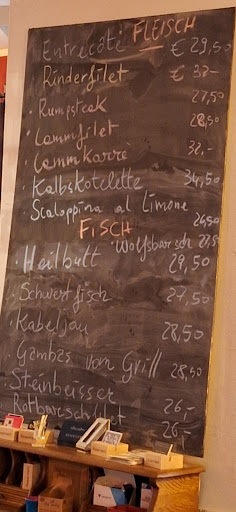 FLEISCH
Entrecôte € 29,50
Rinderfilet € 33,-
Rumpsteak 27,50
Lammfilet 28,50
Lammkarrè 32,-
Kalbskotelette 34,50
Scaloppina al Limone 26,50
FISCH
Wolfsbarsch 27,50
Heilbutt 29,50
Schwertfisch 27,50
Kabeljau 28,50
Gambas vom Grill 28,50
Steinbeisser 26,-
Rotbarschfilet 26,-